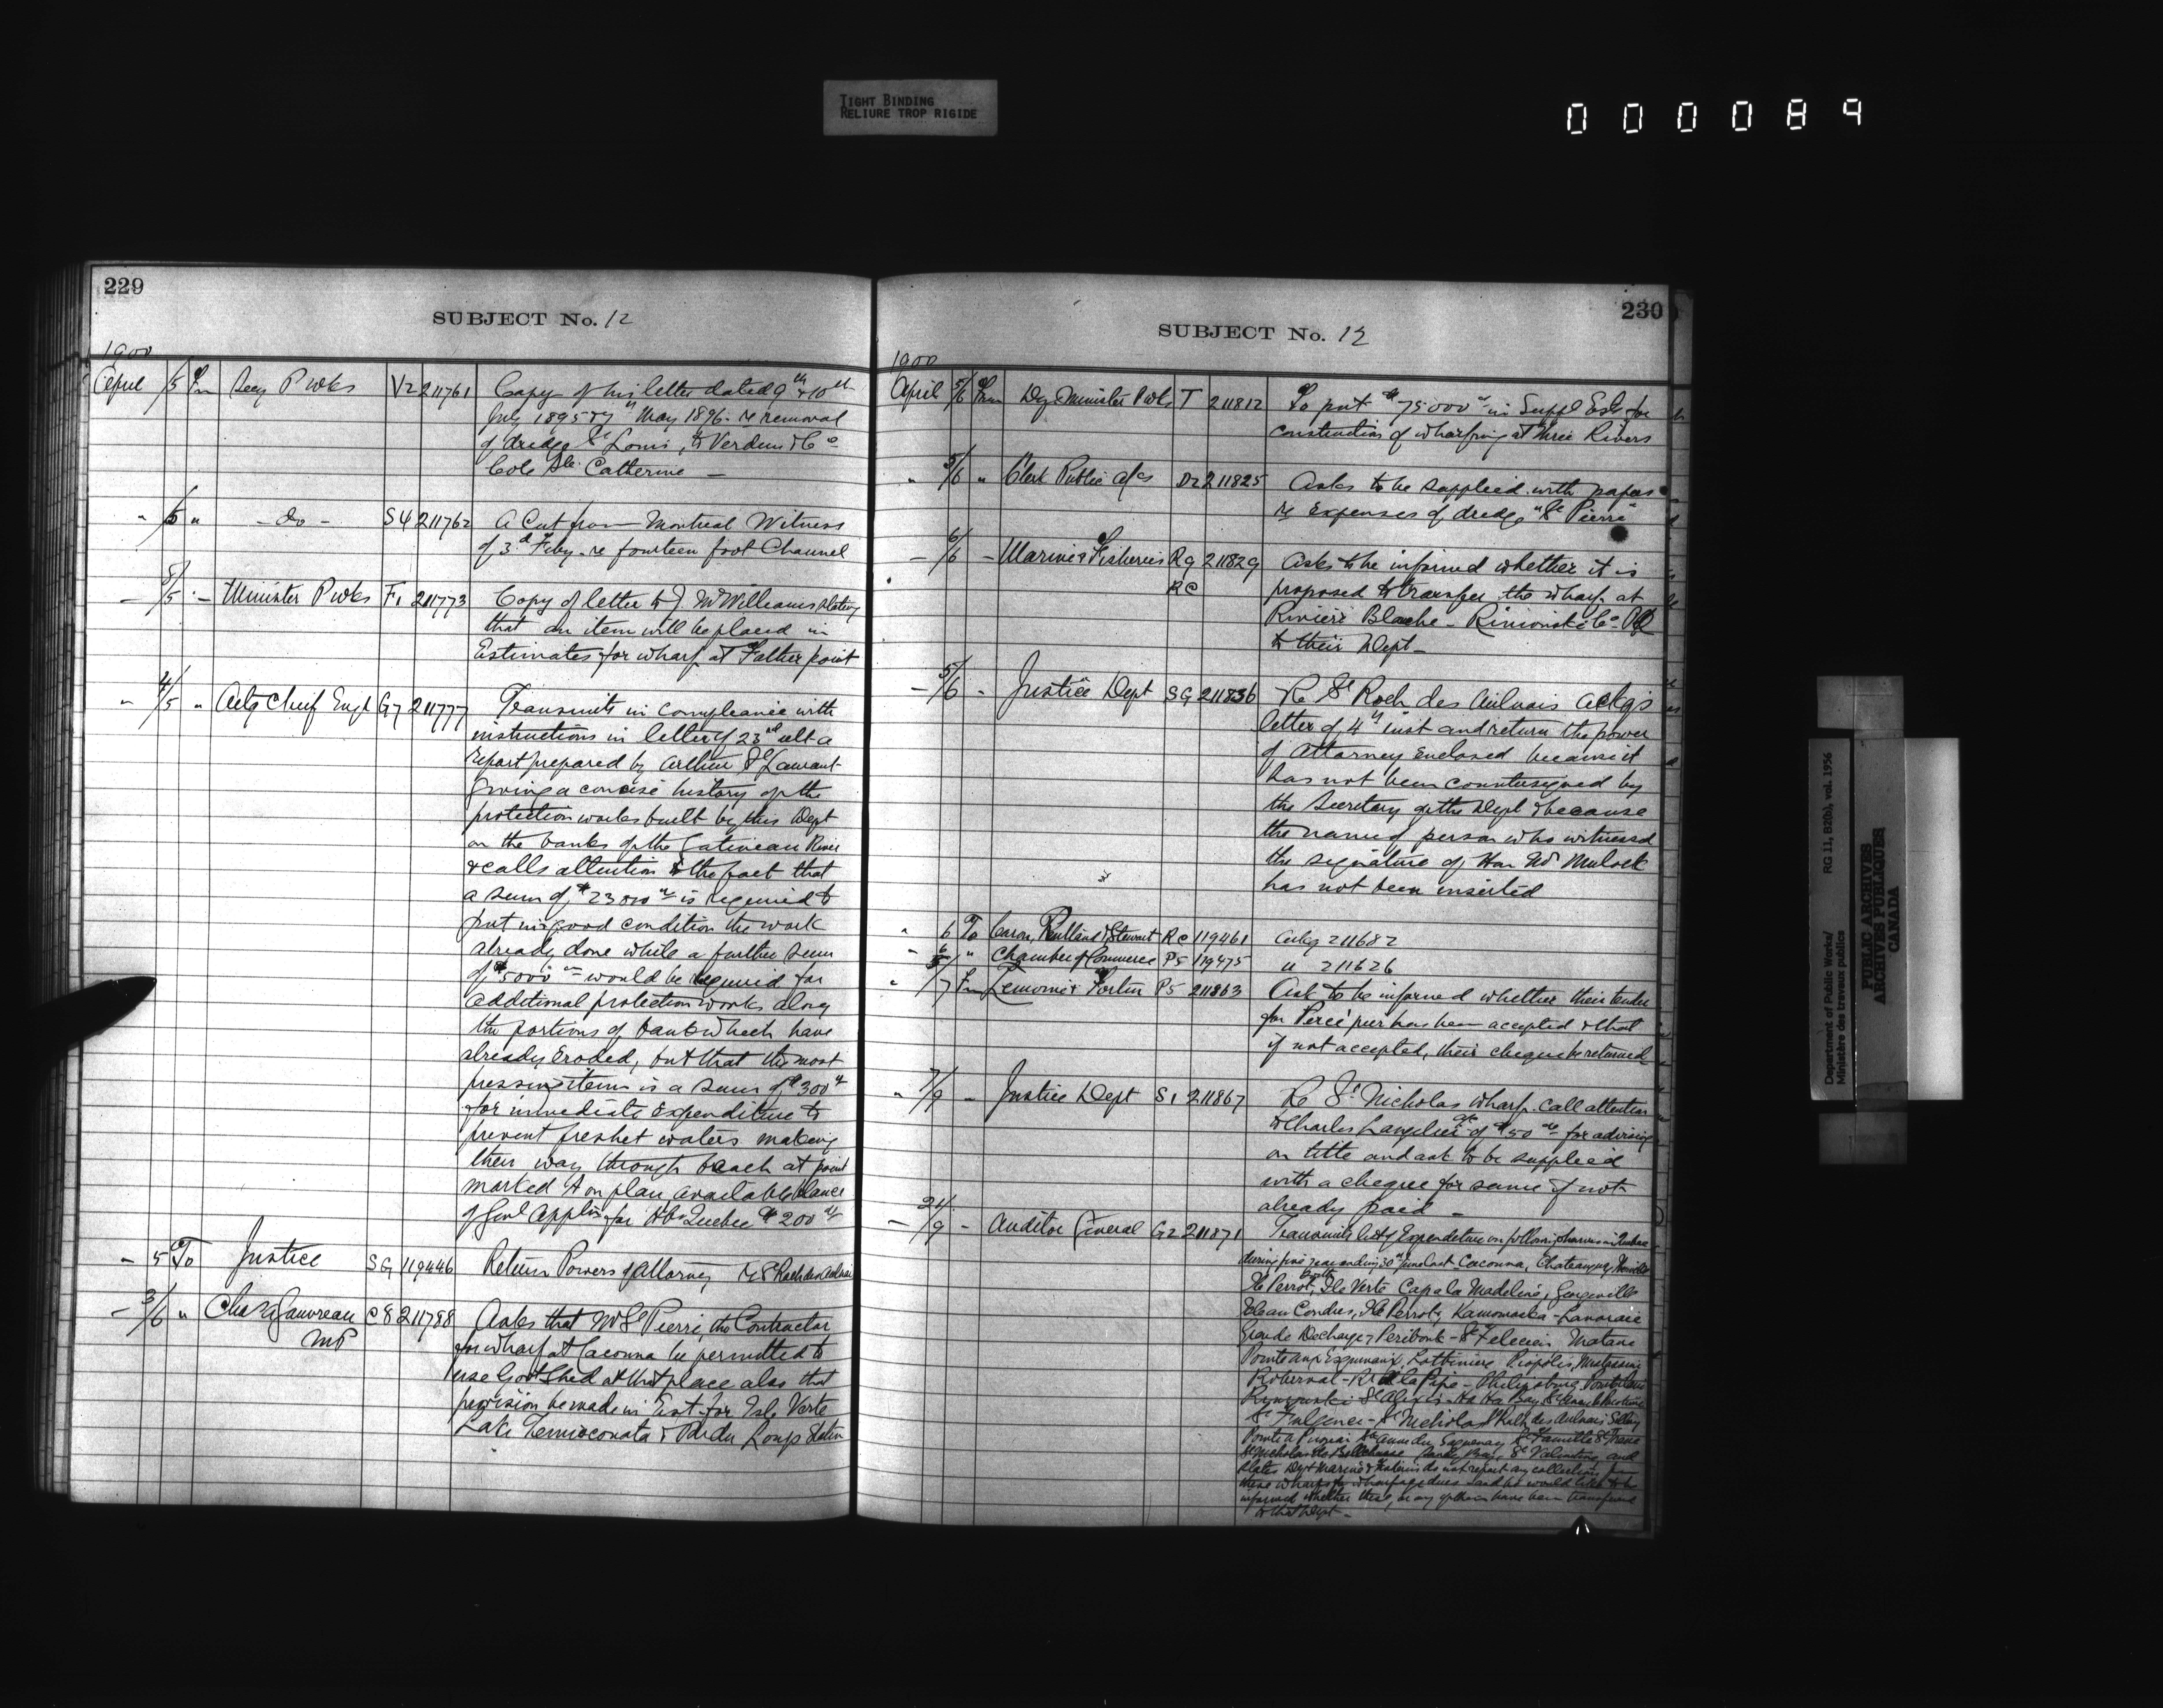 TIGHT BINDING
RELIURE TROP RIGIDE
000089
229
SUBJECT No. 12
1900
April /5 Fm Secy P Wks V2 211761 Copy of his letter dated 9th & 10th
July 1895 & 7th May 1896 re removal
of dredge St Louis, to Verdun & Co
Cote Ste Catherine —
" /5 " - do - S4 211762 A Cut from Montreal Witness
of 3d Feby. re fourteen foot Channel
— 8/5 - Minister P Wks F1 211773 Copy of letter to J. McWilliams stating
that an item will be placed in
Estimates for wharf at Father point
" 4/5 " Actg Chief Engr G7 211777 Transmits in compliance with
instructions in letter of 23rd ult a
report prepared by Arthur St Laurent
giving a concise history of the
protection works built by this Dept
on the banks of the Gatineau River
& calls attention to the fact that
a sum of $23000 is required to
put in good condition the work
already done while a further sum
of $5000 would be required for
additional protection works along
the portions of banks which have
already eroded, but that the most
pressing item is a sum of $300
for immediate expenditure to
prevent freshet waters making
their way through beach at point
marked A on plan, available balance
of Genl Appln for Hbs Quebec $200
— 5 To Justice SG 119446 Return Powers of Attorney re St Roch des Aulnais
— 3/6 " Chas A Gauvreau C8 211798 Asks that Mr St Pierre, the Contractor
MP for wharf at Cacouna be permitted to
use Govt Shed at that place also that
provision be made in Est. for Isle Verte
Lake Temisconata & R du Loup Station
230
SUBJECT No. 12
1900
April 5/6 From Dy Minister P Wks T 211812 To put $75000 in Suppl Ests for
construction of wharfing at Three Rivers
" 5/6 " Clerk Public a/cs D2 211825 Asks to be supplied with papers
re Expenses of dredge "St Pierre"
— 6/6 — Marine & Fisheries R9 211829 Asks to be informed whether it is
RC proposed to transfer the wharf at
Rivière Blanche - Rimouski Co. PQ
to their Dept —
— 5/6 - Justice Dept SG 211836 Re St Roch des Aulnais ackgs
letter of 4th inst and return the power
of Attorney enclosed because it
has not been countersigned by
the Secretary of the Dept & because
the name of person who witnessed
the signature of Hon Wm Mulock
has not been inserted
" 6 To Caron, & Stewart RC 119461 Ackg 211682
" 6 " Chamber of Commerce P5 119475 " 211626
" /7 Fm Lemoine & Fortin P5 211863 Ask to be informed whether their tender
for Percé pier has been accepted & that
if not accepted, their cheque be returned
" 7/9 - Justice Dept S1 211867 Re St Nicholas wharf. Call attention
to Charles Langelier a/c of $50 for advising
on title and ask to be supplied
with a cheque for same if not
already paid —
— 24/9 - Auditor General G2 211871 Transmits list of Expenditure on following wharves in Quebec
during five years ending 30th June last Cacouna, Chateauguay,
Ile Perrot, Ile Verte Cap a la Madeleine, Georgeville
Ile aux Coudres, Ile Perrot, Kamouraska - Lanoraie
Grande Decharge, Peribonk - St Felicien Matane
Pointe aux Esquimaux, Lotbiniere Piopolis,
Roberval - R la Pipe - Philipsburg
Rimouski St Alexis - Ha Ha Bay,
St Fulgence - St Nicholas St Roch des Aulnais Sillery
Ste Anne du Saguenay Ste Famille
St Nicholas de Bellechasse Sandy Bay, St Valentine and
states Dept Marine & Fisheries do not report any collection from
these wharfs for wharfage dues and he would like to be
informed whether these, or any of them have been transferred
to that Dept —
Department of Public Works/ RG 11, B2(b), vol. 1956
Ministère des travaux publics
PUBLIC ARCHIVES
ARCHIVES PUBLIQUES
CANADA